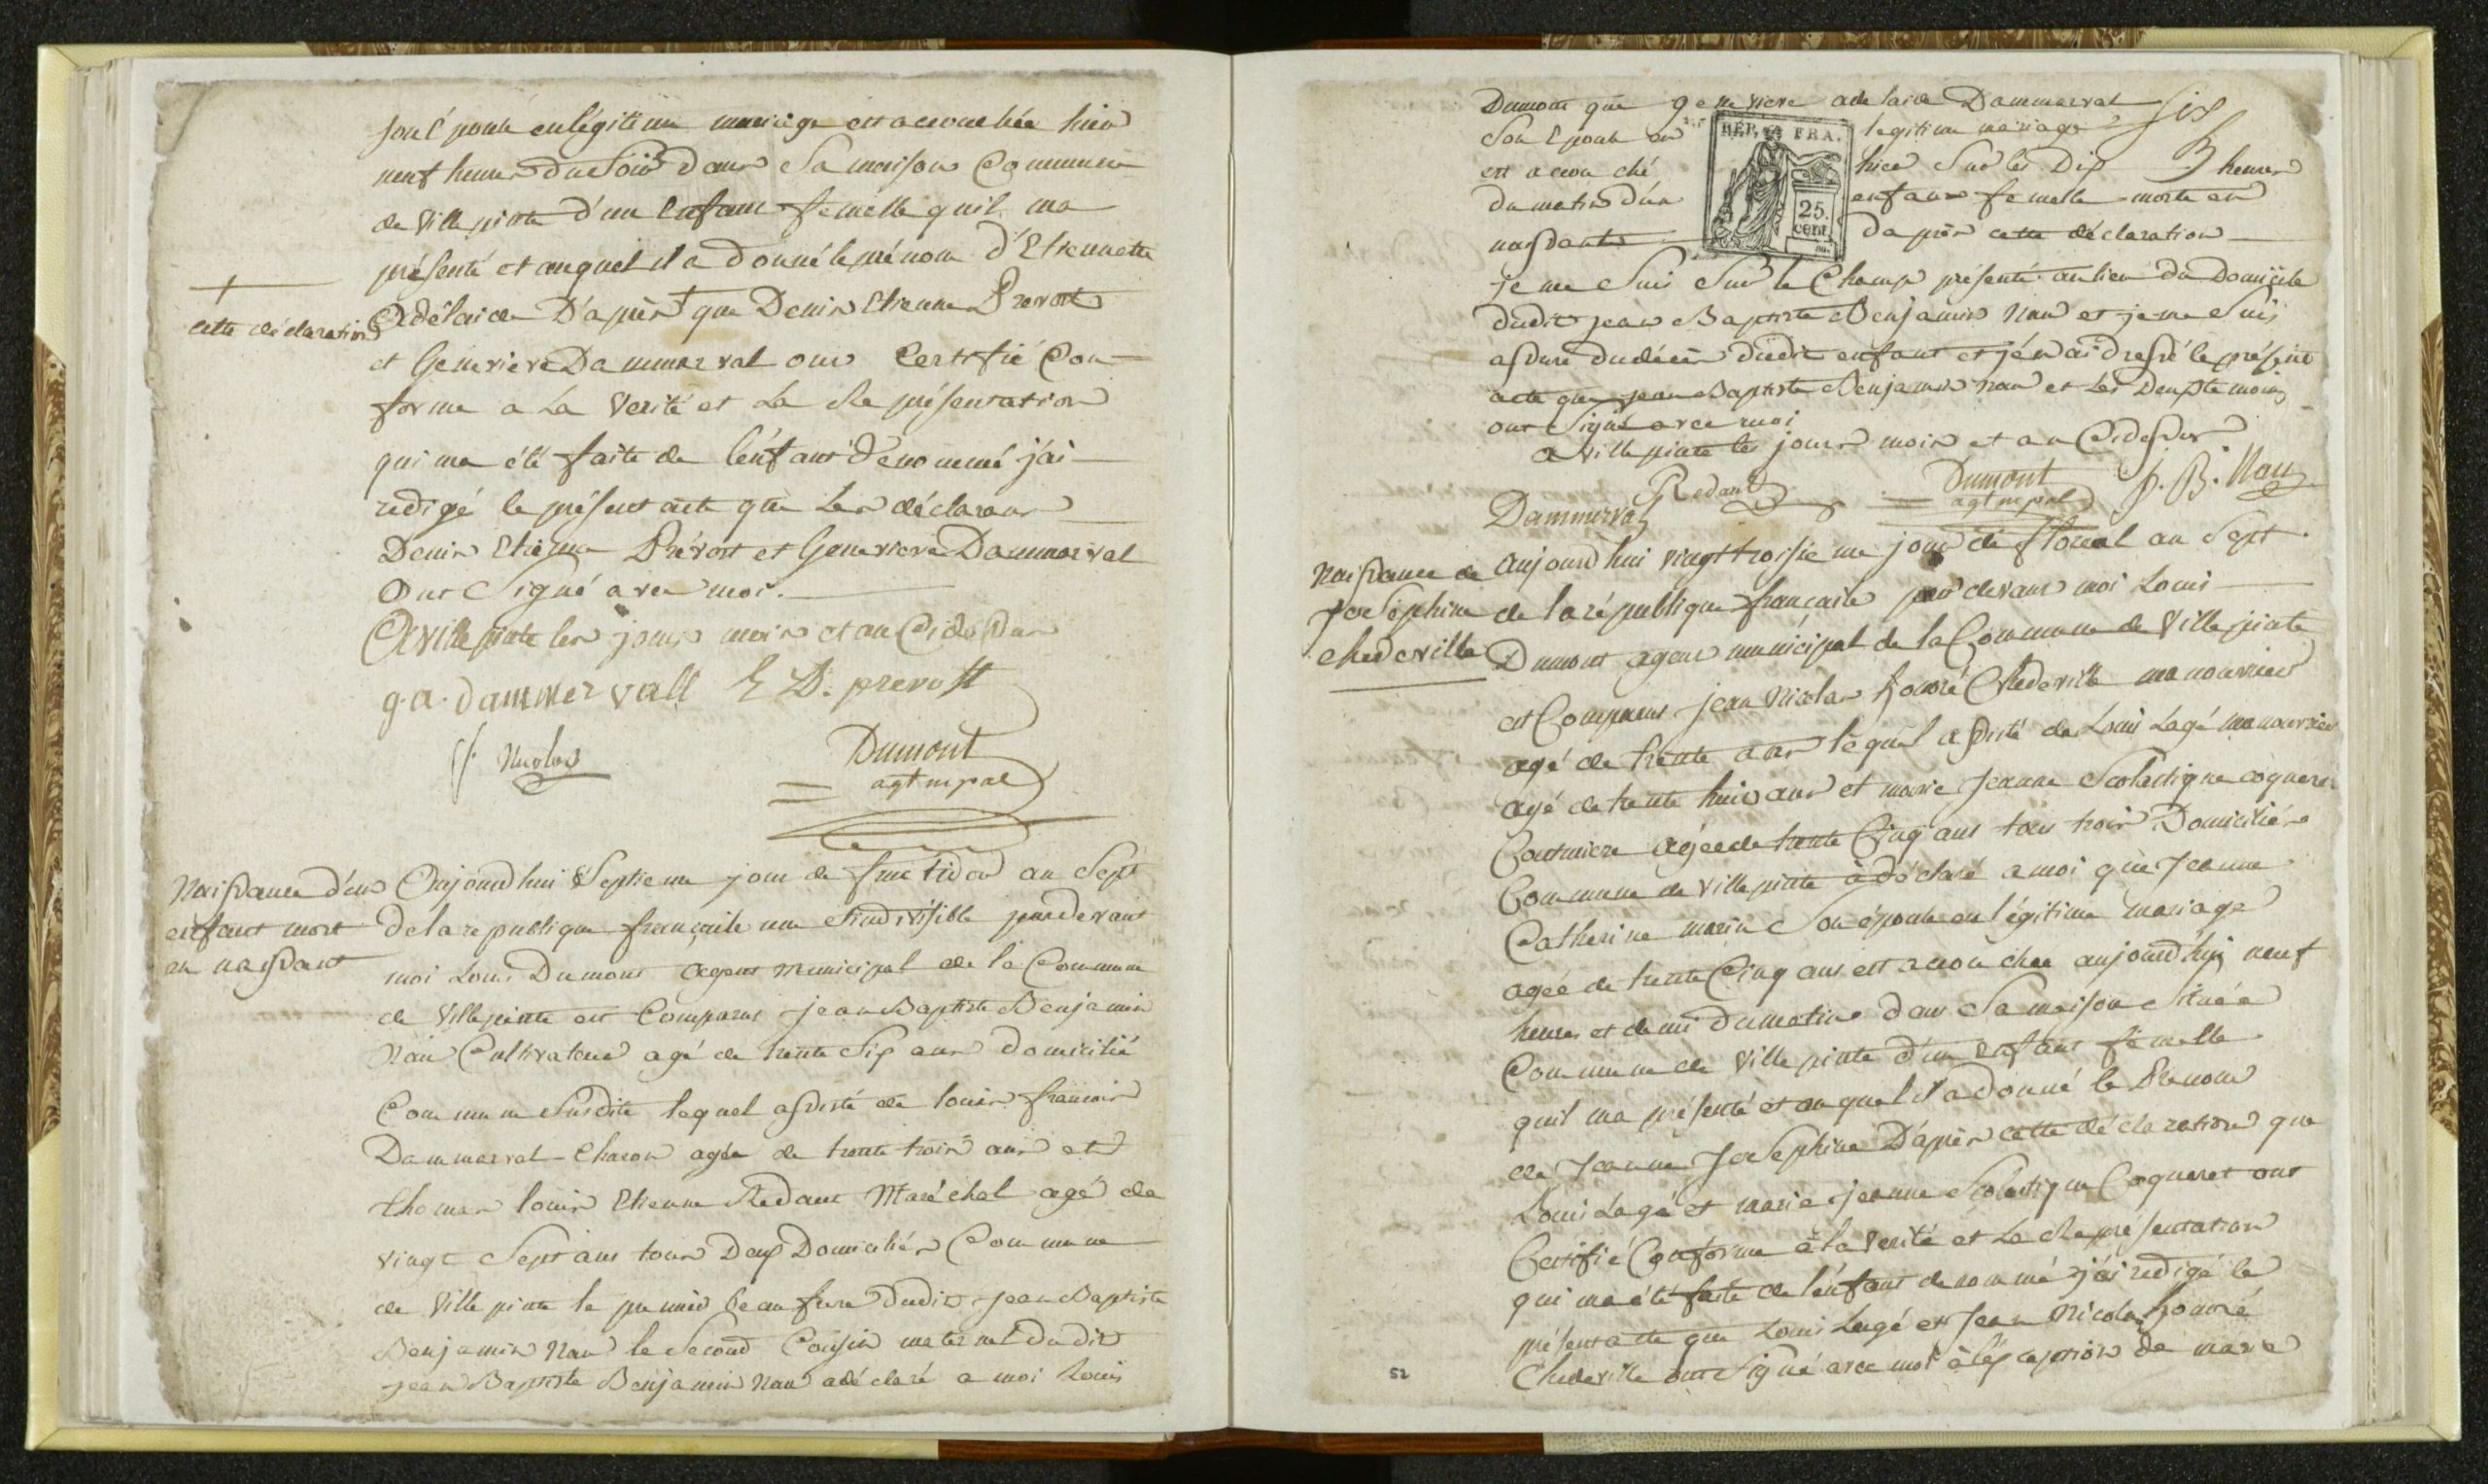 son épouse en légitime mariage est accouchée hier
neuf heures du Soir dans Sa maison Commune
de Villepinte d'un Enfant femelle quil ma
présenté et auquel il a Donné le prénom d'Etiennette
Adélaide D'après + que Denis Etienne Prevost
+ cette déclaration
et Genevieve Dammerval ont Certifié Con-
forme a La Verité et La Représentation
qui ma été faite de l'enfant dénommé j'ai
redigé le présent acte que Les déclarans
Denis Etienne Prévost et Genevieve Dammerval
Ont Signé avec moi.
A Villepinte les jours mois et an Cidessus
g. a. dammervall E D. prevost
Nicolas
Dumont
agt mpal
Naissance d'un
enfant mort
en naissant
Aujourdhui Septieme jour de fructidor an Sept
de la republique française une et indivisible pardevant
moi Louis Dumont agent municipal de la Commune
de Villepinte est Comparus jean Baptiste Benjamin
Nau Cultivateur agé de trente Six ans domicilié
Commune Susdite lequel assisté de louis francois
Dammerval Charon agée de trente trois ans et
thomas louis Etienne Redant Maréchal agé de
vingt Sept ans tous Deux Domiciliés Commune
de Villepinte le premier beaufrere dudit jean Baptiste
Benjamin Nau le Second Cousin maternel dudit
jean Baptiste Benjamin Nau a déclaré a moi Louis
Dumont que genevieve adelaide Dammerval
Son Epouse en legitime mariage
est accouché hier Sur les Dix heures
six
du matin d'un enfant femelle morte en
naissante D'après cette déclaration
RÉP. FRA.
25.
cent.
je me Suis Sur le Champ présenté au lieu du Domicile
dudit jean Baptiste Benjamin Nau et je me Suis
assuré du décès dudit enfant et j'en ai dressé le présent
acte que jean Baptiste Benjamin Nau et Les Deux temoins
ont Signé avec moi
a Villepinte les jours mois et an Cidessus
Dammerval Redant Dumont J. B. Nau
agt mpal
Naissance de
Joséphine
chedeville
Aujourdhui vingt troisieme jour de floreal an Sept
de la république française par devant moi Louis
Dumont agent municipal de la Commune de Villepinte
est Comparus jean Nicolas honoré Chedeville manouvrier
agé de trente ans lequel assisté de Louis Lagé manouvrier
agé de trente huit ans et marie Jeanne Scolastique coqueret
Couturiere agée de trente Cinq ans tous trois Domiciliés
Commune de Villepinte a déclaré a moi que Jeanne
Catherine marin Son épouse en légitime mariage
agée de trente Cinq ans est accouchée aujourd'hui neuf
heures et demi du matin dans Sa maison Située
Commune de Villepinte d'un enfant femelle
quil ma présenté et auquel il a donné le Prenom
de Jeanne Joséphine D'après cette déclaration que
Louis Lagé et marie jeanne Scolastique Coqueret ont
Certifié Conforme a la Verité et La Représentation
qui ma été faite de l'enfant denommé j'ai redigé le
présent acte que Louis Lagé et Jean Nicolas honoré
Chedeville ont Signé avec moi à l'exception de marie
52